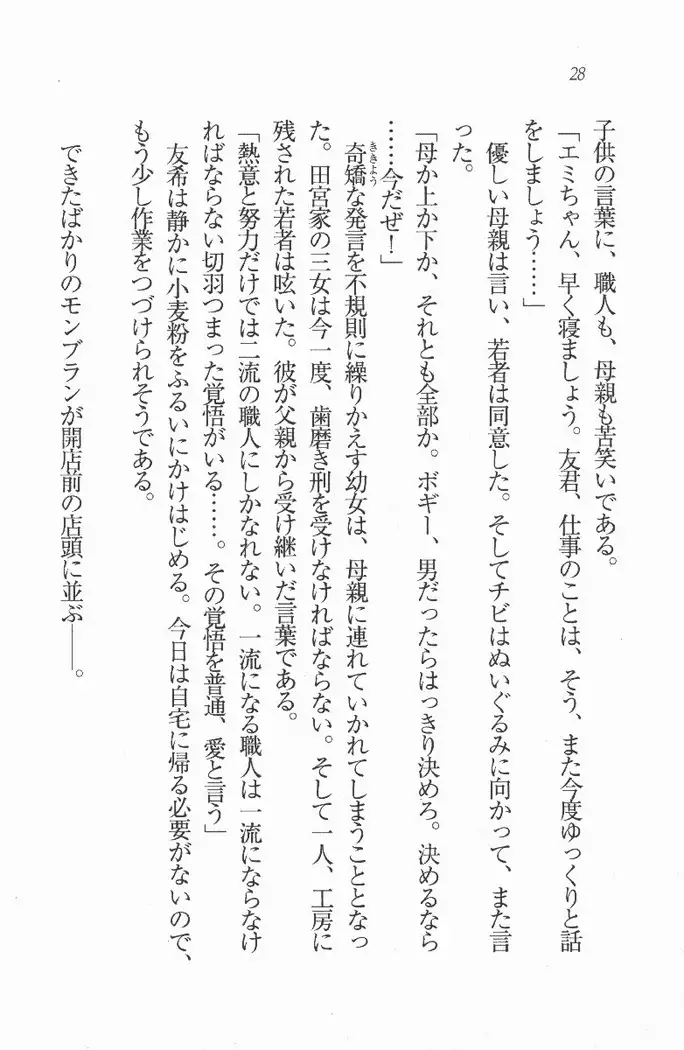 28
子供の言葉に、職人も、母親も苦笑いである。
「エミちゃん、早く寝ましょう。友君、仕事のことは、そう、また今度ゆっくりと話
をしましょう……」
優しい母親は言い、若者は同意した。そしてチビはぬいぐるみに向かって、また言
った。
「母か上か下か、それとも全部か。ボギー、男だったらはっきり決めろ。決めるなら
……今だぜ！」
奇矯な発言を不規則に繰りかえす幼女は、母親に連れていかれてしまうこととなっ
ききょう
た。田宮家の三女は今一度、歯磨き刑を受けなければならない。そして一人、工房に
残された若者は呟いた。彼が父親から受け継いだ言葉である。
「熱意と努力だけでは二流の職人にしかなれない。一流になる職人は一流にならなけ
ればならない切羽つまった覚悟がいる……。その覚悟を普通、愛と言う」
友希は静かに小麦粉をふるいにかけはじめる。今日は自宅に帰る必要がないので、
もう少し作業をつづけられそうである。
できたばかりのモンブランが開店前の店頭に並ぶ――。